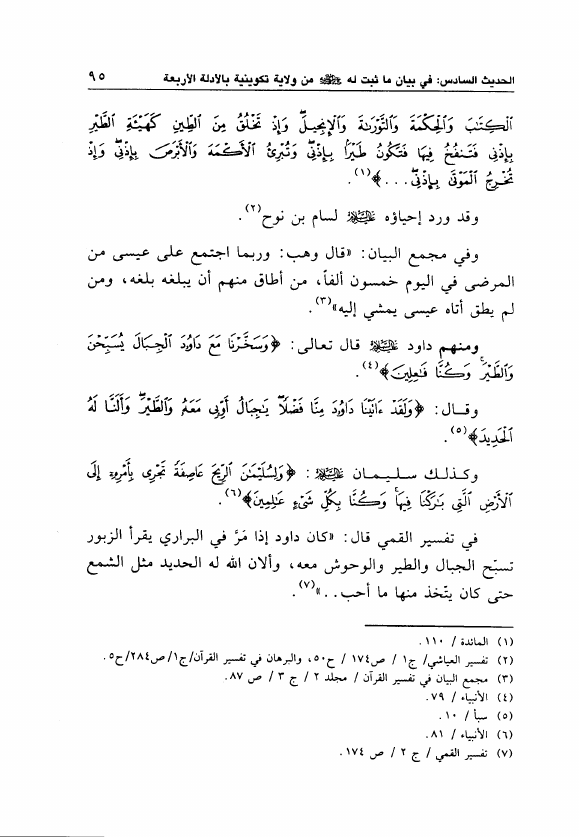 الحديث السادس: في بيان ما ثبت له ﷺ من ولاية تكوينية بالأدلة الأربعة ٩٥
ٱلْكِتَٰبَ وَٱلْحِكْمَةَ وَٱلتَّوْرَىٰةَ وَٱلْإِنجِيلَ ۖ وَإِذْ تَخْلُقُ مِنَ ٱلطِّينِ كَهَيْـَٔةِ ٱلطَّيْرِ
بِإِذْنِى فَتَنفُخُ فِيهَا فَتَكُونُ طَيْرًۢا بِإِذْنِى ۖ وَتُبْرِئُ ٱلْأَكْمَهَ وَٱلْأَبْرَصَ بِإِذْنِى ۖ وَإِذْ
تُخْرِجُ ٱلْمَوْتَىٰ بِإِذْنِى ۖ ...﴾(١).
وقد ورد إحياؤه عليه السلام لسام بن نوح(٢).
وفي مجمع البيان: «قال وهب: وربما اجتمع على عيسى من
المرضى في اليوم خمسون ألفاً، من أطاق منهم أن يبلغه بلغه، ومن
لم يطق أتاه عيسى يمشي إليه»(٣).
ومنهم داود عليه السلام قال تعالى: ﴿وَسَخَّرْنَا مَعَ دَاوُۥدَ ٱلْجِبَالَ يُسَبِّحْنَ
وَٱلطَّيْرَ ۚ وَكُنَّا فَٰعِلِينَ﴾(٤).
وقال: ﴿وَلَقَدْ ءَاتَيْنَا دَاوُۥدَ مِنَّا فَضْلًا ۖ يَٰجِبَالُ أَوِّبِى مَعَهُۥ وَٱلطَّيْرَ ۖ وَأَلَنَّا لَهُ
ٱلْحَدِيدَ﴾(٥).
وكذلك سليمان عليه السلام: ﴿وَلِسُلَيْمَٰنَ ٱلرِّيحَ عَاصِفَةً تَجْرِى بِأَمْرِهِۦٓ إِلَى
ٱلْأَرْضِ ٱلَّتِى بَٰرَكْنَا فِيهَا ۚ وَكُنَّا بِكُلِّ شَىْءٍ عَٰلِمِينَ﴾(٦).
في تفسير القمي قال: «كان داود إذا مَرَّ في البراري يقرأ الزبور
تسبّح الجبال والطير والوحوش معه، وألان الله له الحديد مثل الشمع
حتى كان يتّخذ منها ما أحب..»(٧).
(١) المائدة / ١١٠.
(٢) تفسير العياشي/ ج١ / ص١٧٤ / ح٥٠، والبرهان في تفسير القرآن/ج١/ص٢٨٤/ح٥.
(٣) مجمع البيان في تفسير القرآن / مجلد ٢ / ج ٣ / ص ٨٧.
(٤) الأنبياء / ٧٩.
(٥) سبأ / ١٠.
(٦) الأنبياء / ٨١.
(٧) تفسير القمي / ج ٢ / ص ١٧٤.